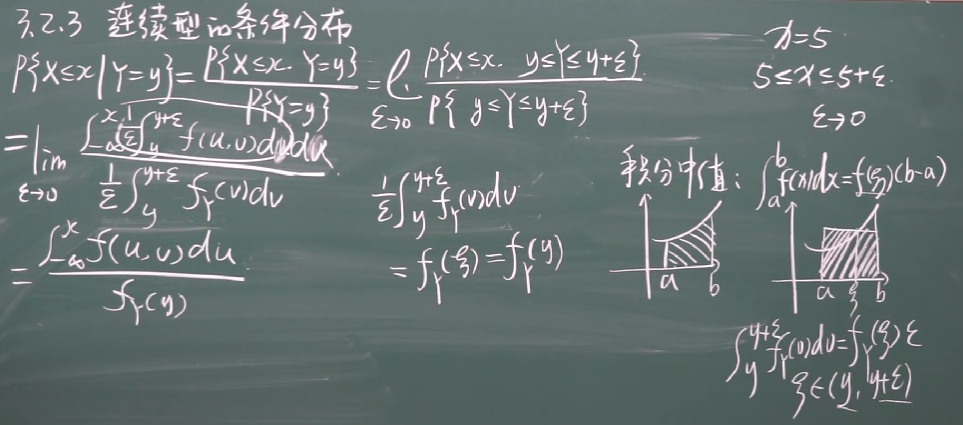 3.2.3 连续型的条件分布
P{X≤x|Y=y}=P{X≤x. Y=y}/P{Y=y}=lim_{ε→0} P{X≤x. y≤Y≤y+ε}/P{y≤Y≤y+ε}
=lim_{ε→0} ∫_{-∞}^{x} 1/ε ∫_{y}^{y+ε} f(u,v)dv du / 1/ε ∫_{y}^{y+ε} f_Y(v)dv
=∫_{-∞}^{x} f(u,v)du / f_Y(y)
1/ε ∫_{y}^{y+ε} f_Y(v)dv
=f_Y(ξ)=f_Y(y)
x=5
5≤x≤5+ε
ε→0
积分中值: ∫_{a}^{b} f(x)dx=f(ξ)(b-a)
a b
a ξ b
∫_{y}^{y+ε} f_Y(v)dv=f_Y(ξ)ε
ξ∈(y, y+ε)